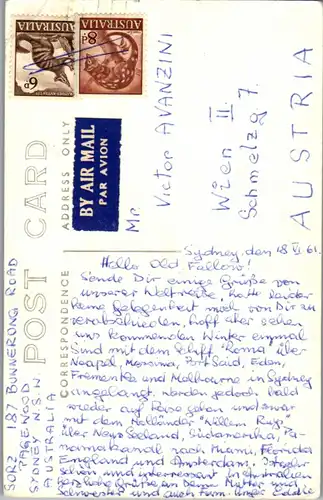 AUSTRALIA
6D
AUSTRALIA
8D
POST CARD
ADDRESS ONLY
CORRESPONDENCE
BY AIR MAIL
PAR AVION
Mr Victor AVANZINI
Wien II
Schmelzg. 7
AUSTRIA
Sydney, den 18 VI. 61.
Hello Old Fellow!
Sende Dir einige Grüße von
unserer Weltreise, hatte leider
keine Gelegenheit mich von Dir zu
verabschieden, hoff aber schon
uns kommenden Winter einmal
Sind mit dem Schiff "Roma" über
Neapel, Messina, Port Said, Eden,
Fremantle und Melbourne in Sydney
angelangt, werden jedoch bald
wieder auf Reise gehen und zwar
mit dem Holländer "Willem Ruys"
über Neuseeland, Südamerika, Pa-
namakanal nach Miami, Florida
England und Amsterdam.
schön und interessant
herzliche Grüße an Deine Mutter und
Schwester und auch von
SORZ 187 BUNNERONG ROAD
PAGEWOOD
SYDNEY N.S.W
AUSTRALIA